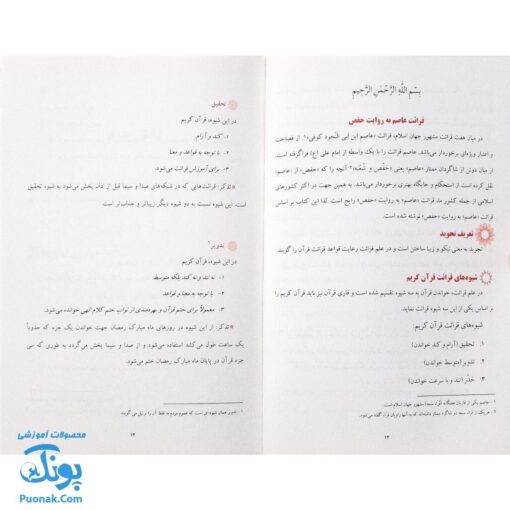 بِسْمِ اللَّهِ الرَّحْمٰنِ الرَّحِيمِ
قرائت عاصم به روایت حفص
در میان هفت قرائت مشهور جهان اسلام، قرائت «عاصم ابن ابی النّجود کوفی»۱ از فصاحت
و اعتبار ویژه‌ای برخوردار می‌باشد. عاصم قرائت را با یک واسطه از امام علی (ع) فراگرفته است.
از میان دو تن از شاگردان ممتاز «عاصم» یعنی «حَفْص و شُعْبَه»۲ آنچه را که «حفص» از «عاصم»
نقل کرده است از استحکام و جایگاه بهتری برخوردار می‌باشد. به همین جهت در اکثر کشورهای
اسلامی از جمله کشور ما، قرائت «عاصم» به روایت «حفص» رایج است. لذا این کتاب بر اساس
قرائت «عاصم» به روایت «حفص» نوشته شده است.
تعریف تجوید
تجوید به معنی نیکو و زیبا ساختن است و در علم قرائت رعایت قواعد قرائت قرآن را گویند.
شیوه‌های قرائت قرآن کریم
در علم قرائت، خواندن قرآن به سه شیوه تقسیم شده است و قاری قرآن نیز باید قرآن کریم را
بر اساس یکی از این سه شیوه قرائت نماید.
شیوه‌های قرائت قرآن کریم:
۱. تحقیق (آرام و کند خواندن)
۲. تدویر (متوسط خواندن)
۳. حَدْر (تند و با سرعت خواندن)
۱- عاصم یکی از قاریان هفتگانه (قُرّاء سبعه) مشهور جهان اسلام است.
۲- هر یک از قراء سبعه دو شاگرد ممتاز داشته‌اند که به آنها راویان قراء، گفته می‌شود.
۱۲
تحقیق
در این شیوه، قرآن کریم
۱- کند و آرام
۲- با توجه به قواعد و معنا
۳- برای آموزش قرائت می‌شود.
تذکر: قرائت‌هایی که در شبکه‌های صدا و سیما قبل از اذان پخش می‌شود به شیوه تحقیق
است. این شیوه نسبت به دو شیوه دیگر زیباتر و جذاب‌تر است.
تدویر۱
در این شیوه، قرآن کریم
۱- نه تند و نه کند بلکه متوسط
۲- با توجه به معنا و قواعد
۳- معمولاً برای ختم قرآن و بهره‌مندی از ثواب ختم کلام الهی خوانده می‌شود.
تذکر: از این شیوه در روزهای ماه مبارک رمضان جهت خواندن یک جزء که حدوداً
یک ساعت طول می‌کشد استفاده می‌شود و از صدا و سیما پخش می‌گردد به طوری که سی
جزء قرآن در پایان ماه مبارک رمضان ختم می‌شود.
۱- تدویر همان شیوه ای است که عموم مردم به غلط آن را ترتیل می گویند.
۱۳
محصولات آموزشی
پونک
Puonak.Com